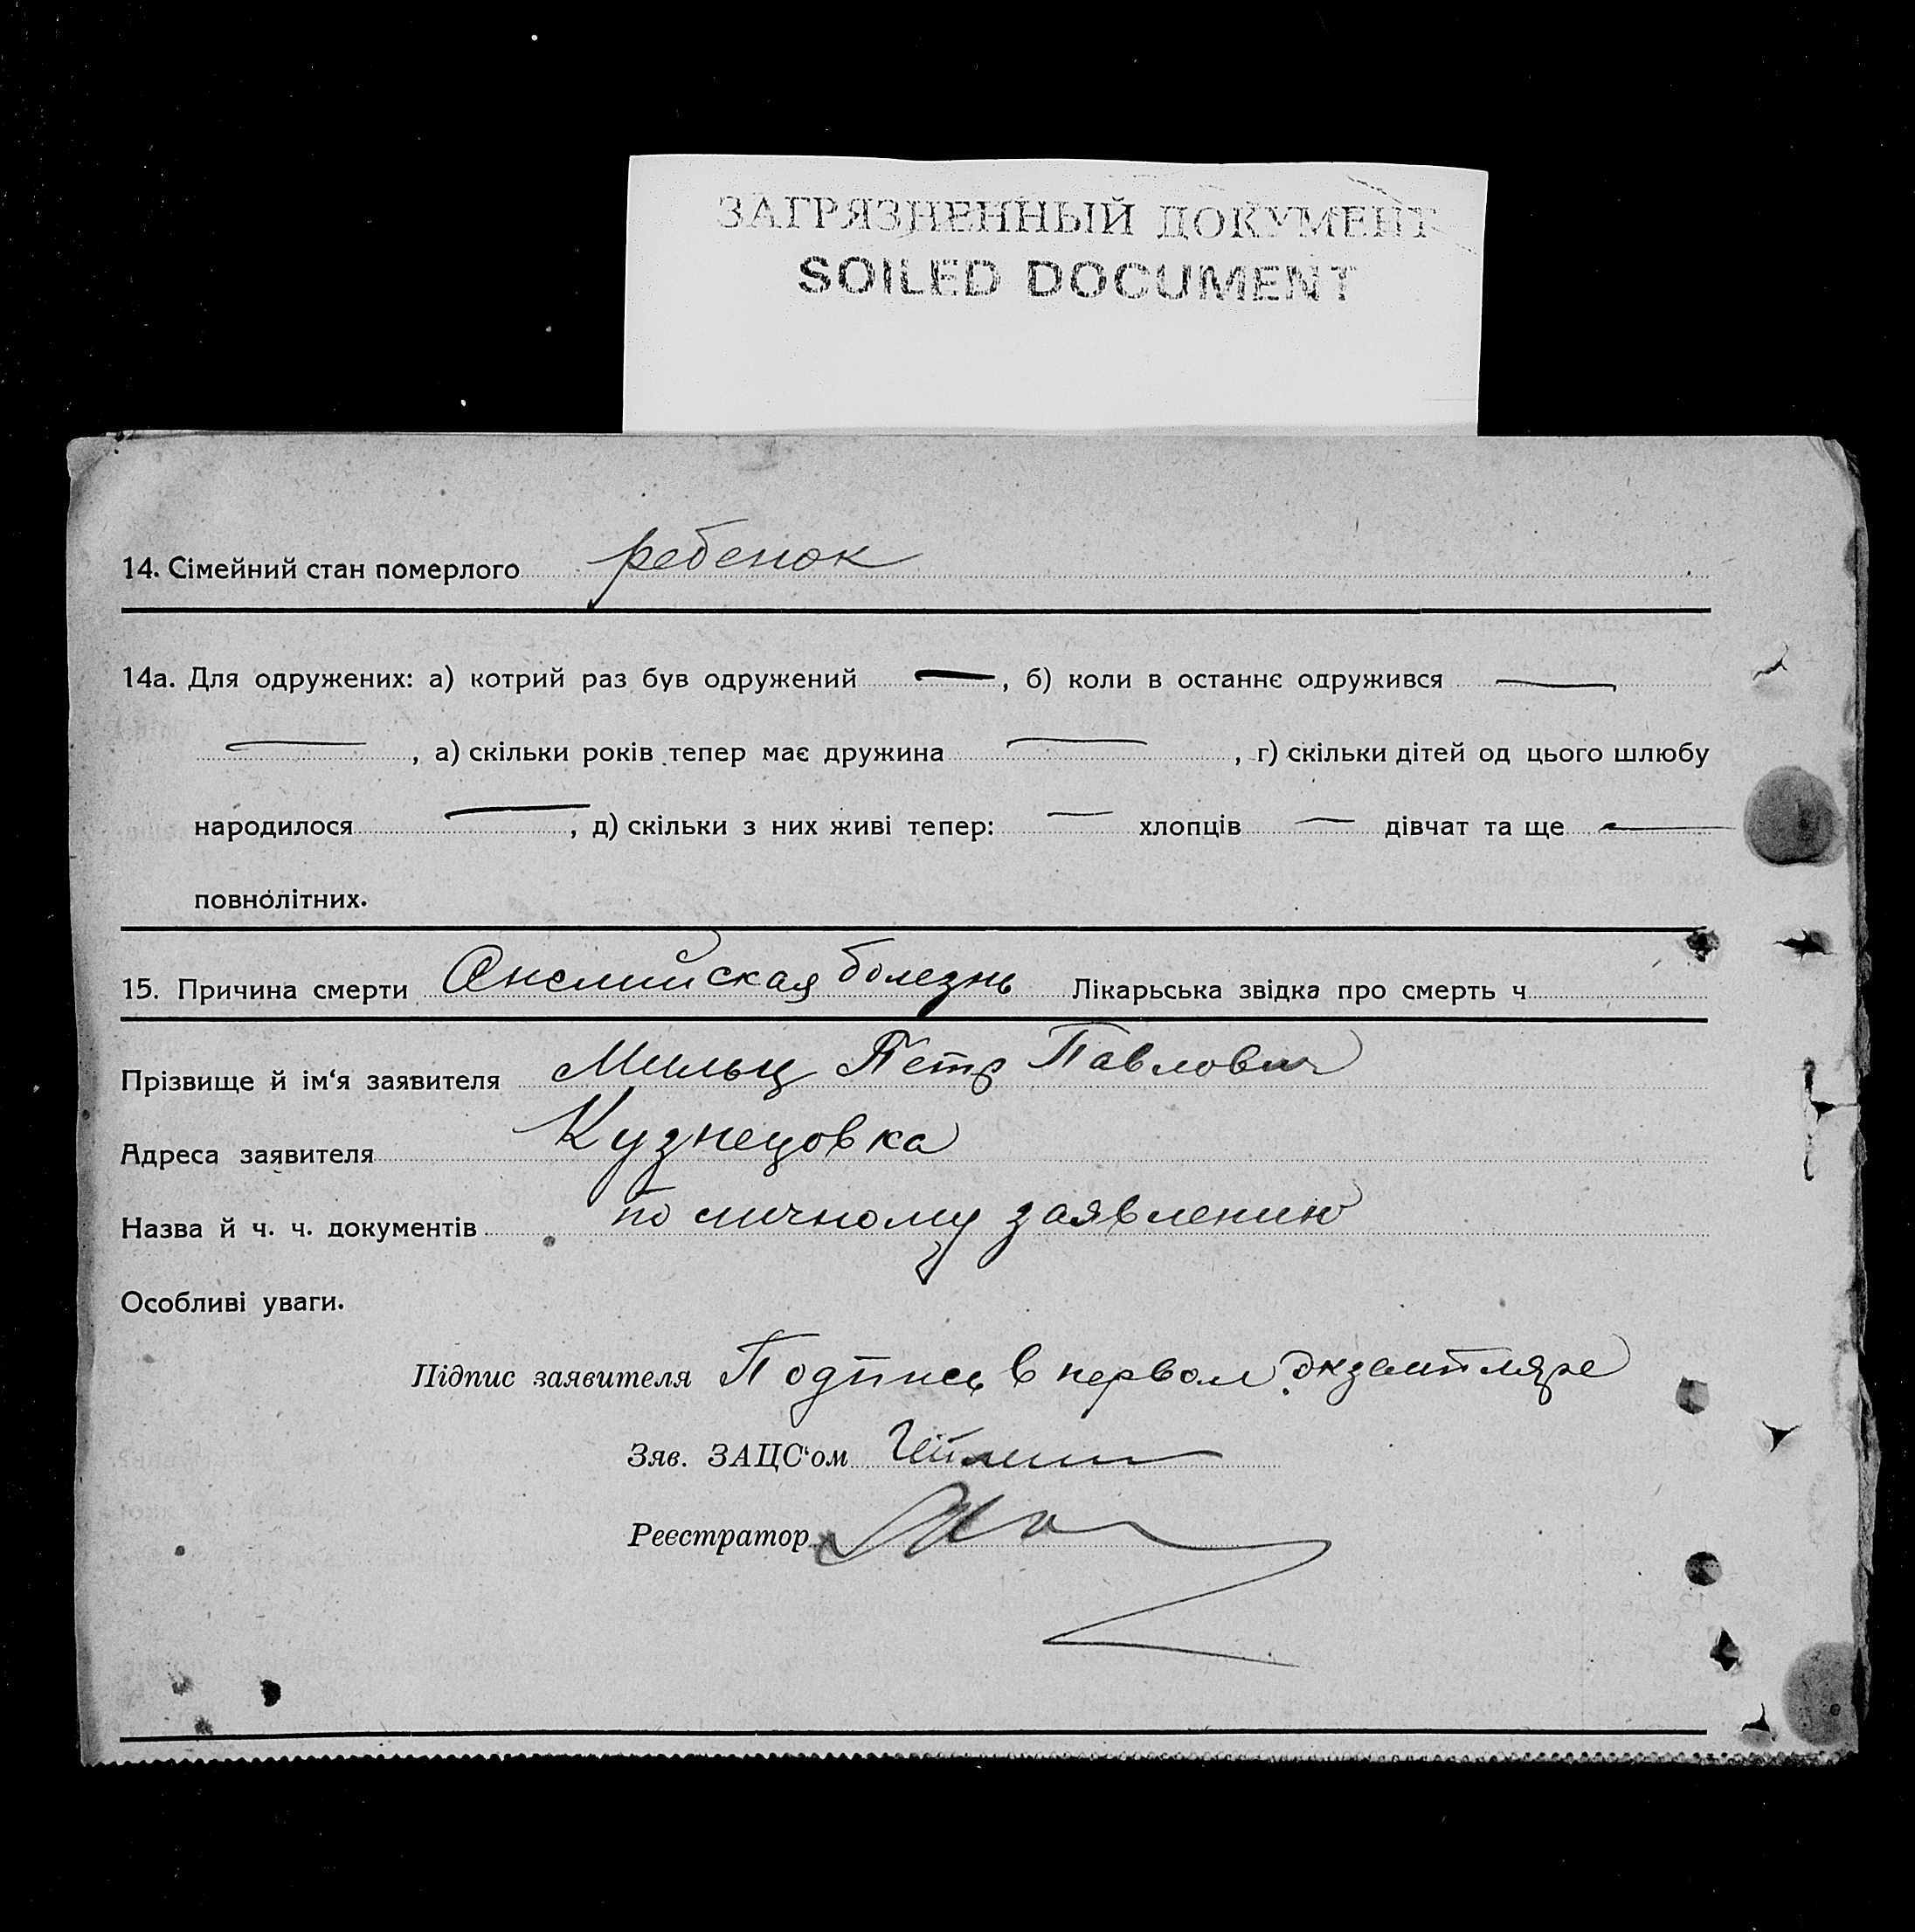 ЗАГРЯЗНЕННЫЙ ДОКУМЕНТ
SOILED DOCUMENT
14. Сімейний стан померлого ребенок
14а. Для одружених: а) котрий раз був одружений —, б) коли в останнє одружився —
—, а) скільки років тепер має дружина —, г) скільки дітей од цього шлюбу
народилося —, д) скільки з них живі тепер: — хлопців — дівчат та ще —
повнолітних.
15. Причина смерти Английская болезнь Лікарьська звідка про смерть ч
Прізвище й ім‘я заявителя Мильц Петр Павлович
Адреса заявителя Кузнецовка
Назва й ч. ч. документів по личному заявлению
Особливі уваги.
Підпис заявителя Подпись в первом экземпляре
Зяв. ЗАЦС‘ом
Реєстратор